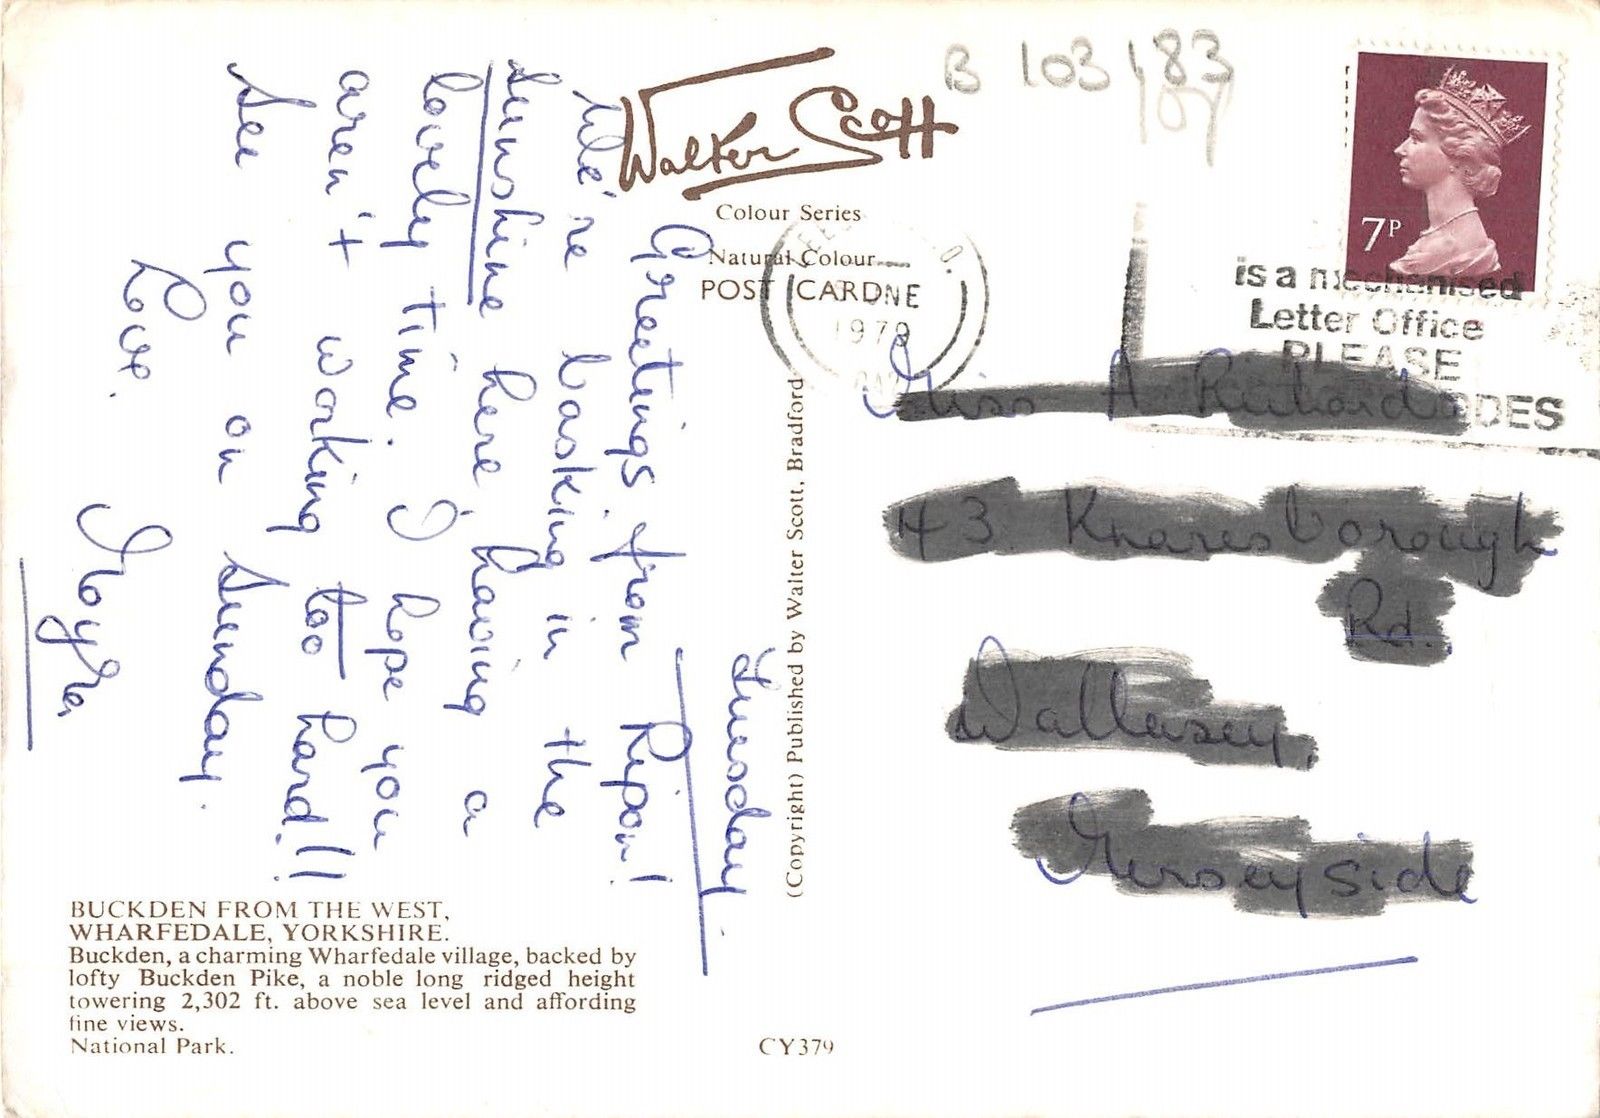 Walter Scott
Colour Series
Natural Colour
POST CARD
B 103 183
7P
is a mechanised
Letter Office
PLEASE
Tuesday.
Greetings from Ripon!
We're basking in the
sunshine here having a
lovely time. I hope you
aren't working too hard!!
See you on Sunday.
Love.
Moyra
(Copyright) Published by Walter Scott, Bradford
BUCKDEN FROM THE WEST,
WHARFEDALE, YORKSHIRE.
Buckden, a charming Wharfedale village, backed by
lofty Buckden Pike, a noble long ridged height
towering 2,302 ft. above sea level and affording
fine views.
National Park.
CY379